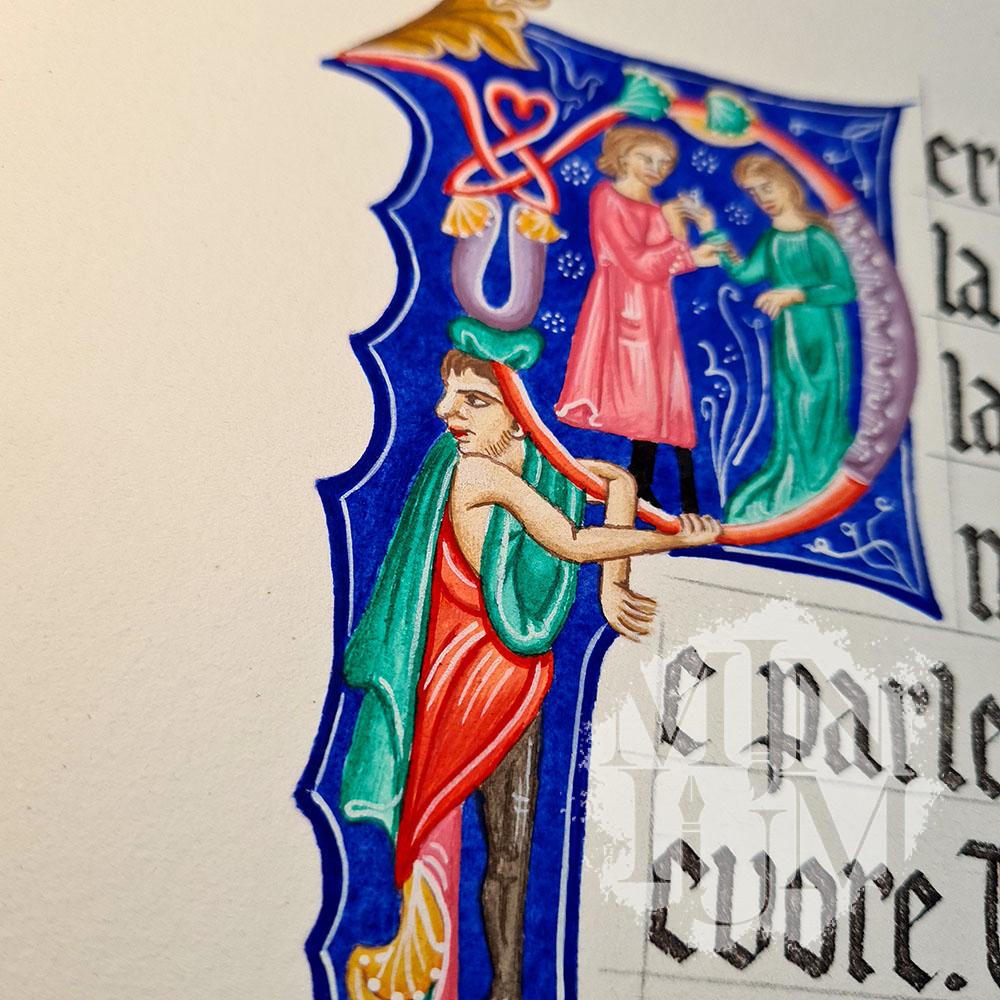 er
la
la
e parle
cuore.